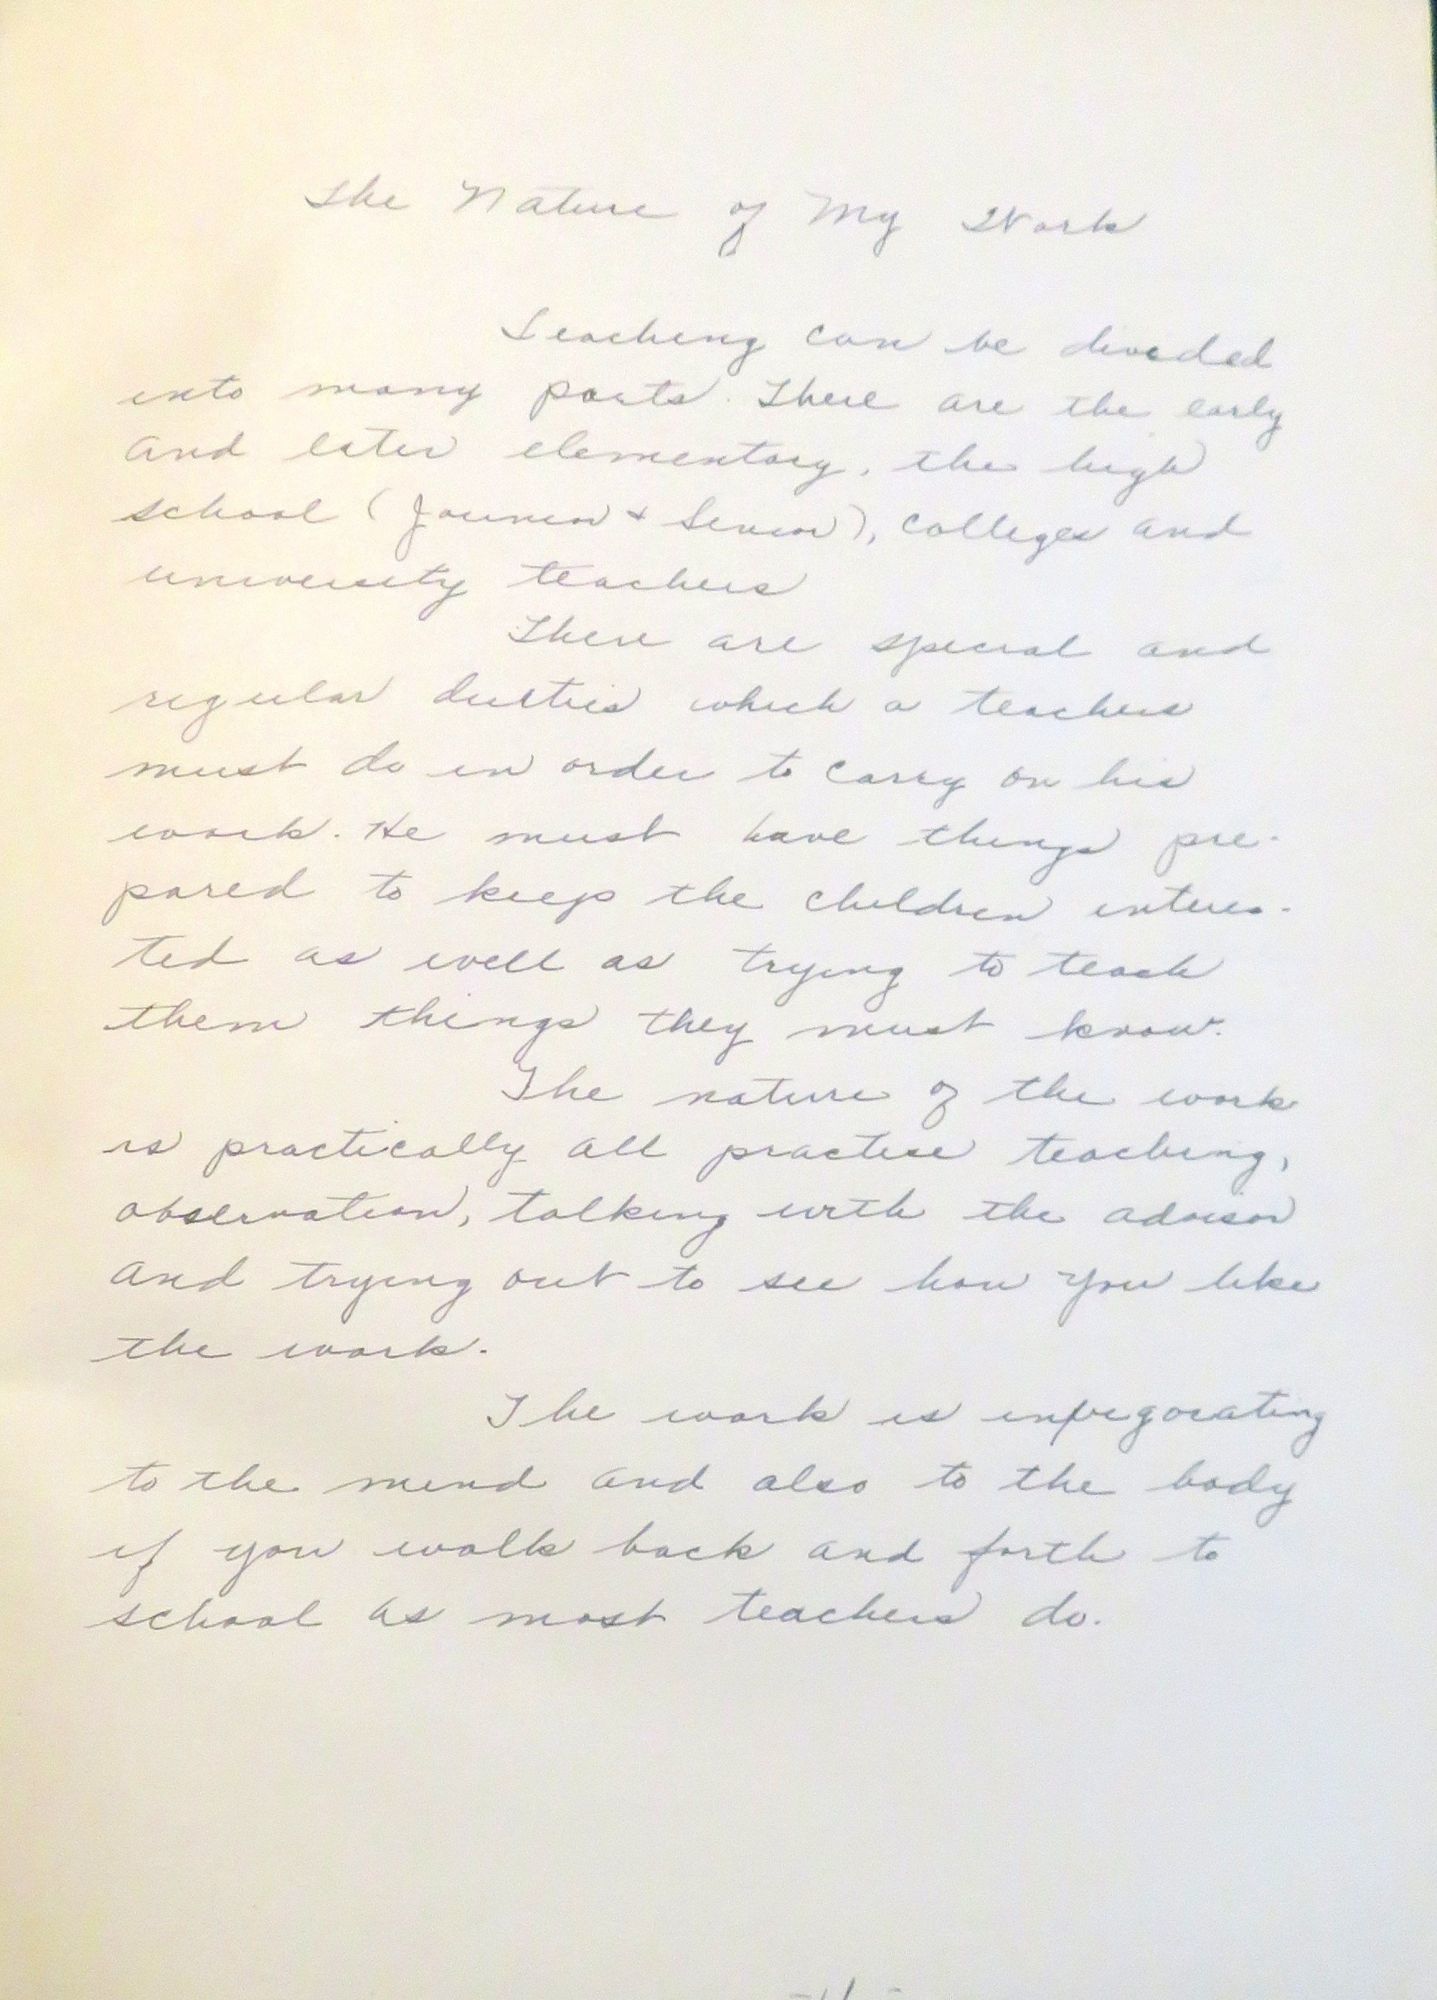 The Nature of My Work
Teaching can be divided
into many parts. There are the early
and later elementary, the high
school (Jounior + Senior), colleges and
university teachers
There are special and
regular duties which a teachers
must do in order to carry on his
work. He must have things pre-
pared to keep the children interes-
ted as well as trying to teach
them things they must know.
The nature of the work
is practically all practise teaching,
observation, talking with the advisor
and trying out to see how you like
the work.
The work is invigorating
to the mind and also to the body
if you walk back and forth to
school as most teachers do.